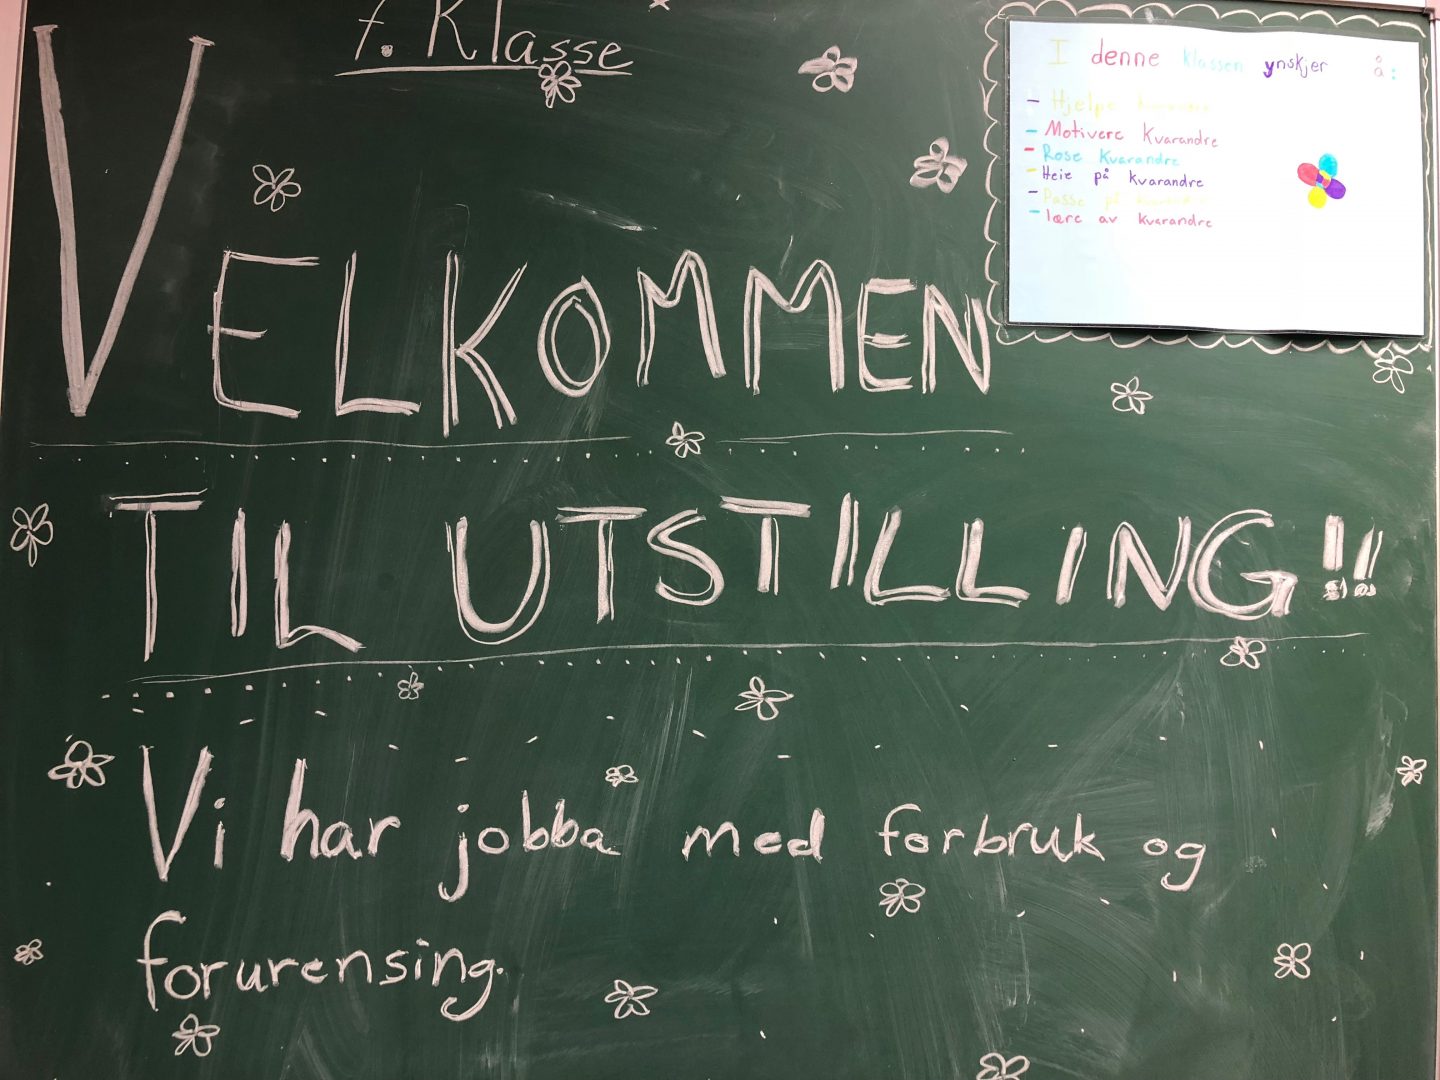 7. Klasse
VELKOMMEN
TIL UTSTILLING!!
Vi har jobba med forbruk og
forurensing.
I denne klassen ynskjer å:
- Hjelpe kvarandre
- Motivere Kvarandre
- Rose Kvarandre
- Heie på kvarandre
- Passe på kvarandre
- lære av kvarandre